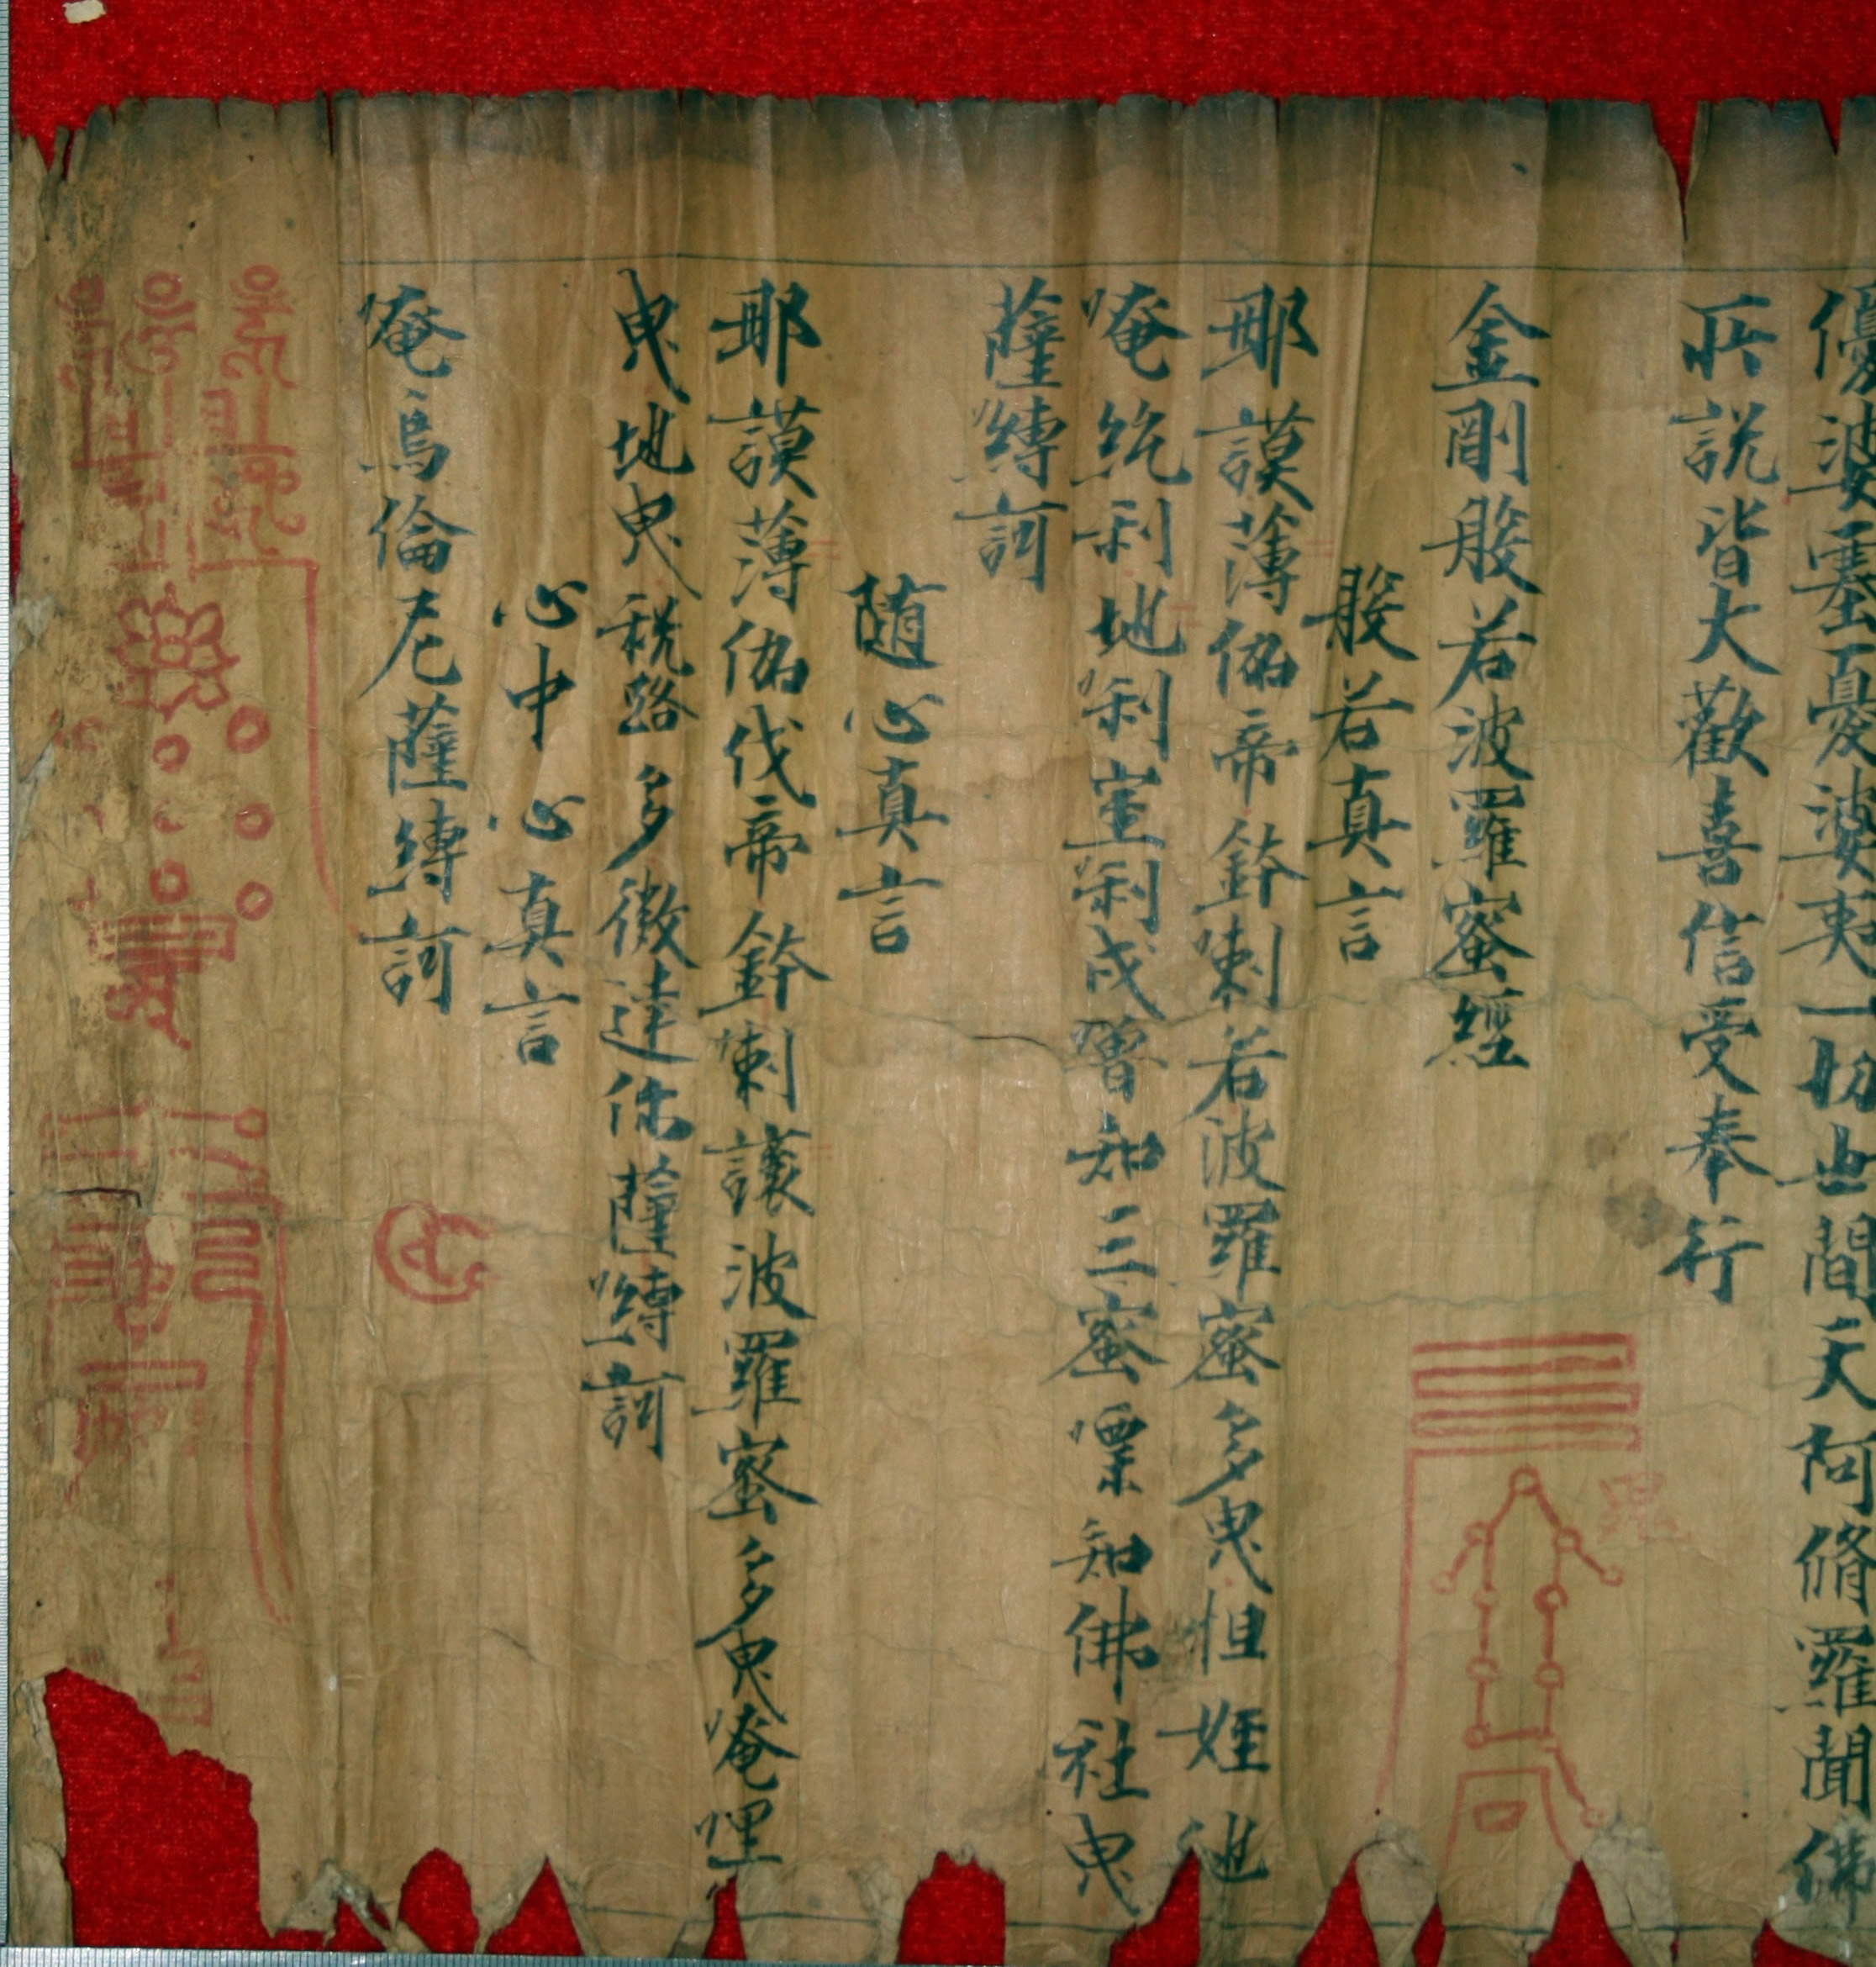 優波塞憂波婆夷一切世間天阿脩羅聞佛
所說皆大歡喜信受奉行
金剛般若波羅蜜經
般若真言
那謨薄伽帝鉢喇若波羅蜜多曳怛姪他
唵紇利地唎利室唎戍嚕知三蜜㗚知佛社曳
薩縛訶
隨心真言
那謨薄伽伐帝鉢喇讓波羅蜜多曳唵哩
曳地曳税路多徴達你薩嚩訶
心中心真言
唵烏倫尼薩縛訶